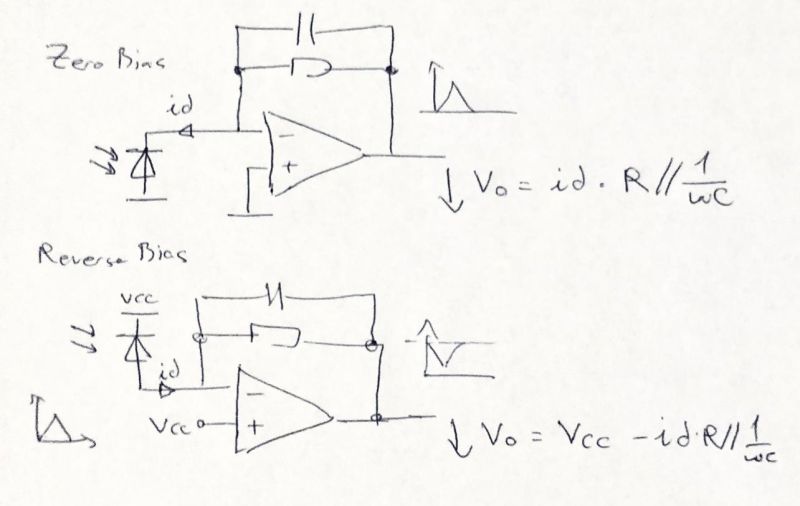 Zero Bias
id
−
+
↓ Vo = id · R // 1/ωC
Reverse Bias
Vcc
id
−
Vcc
+
↓ Vo = Vcc − id·R // 1/ωc